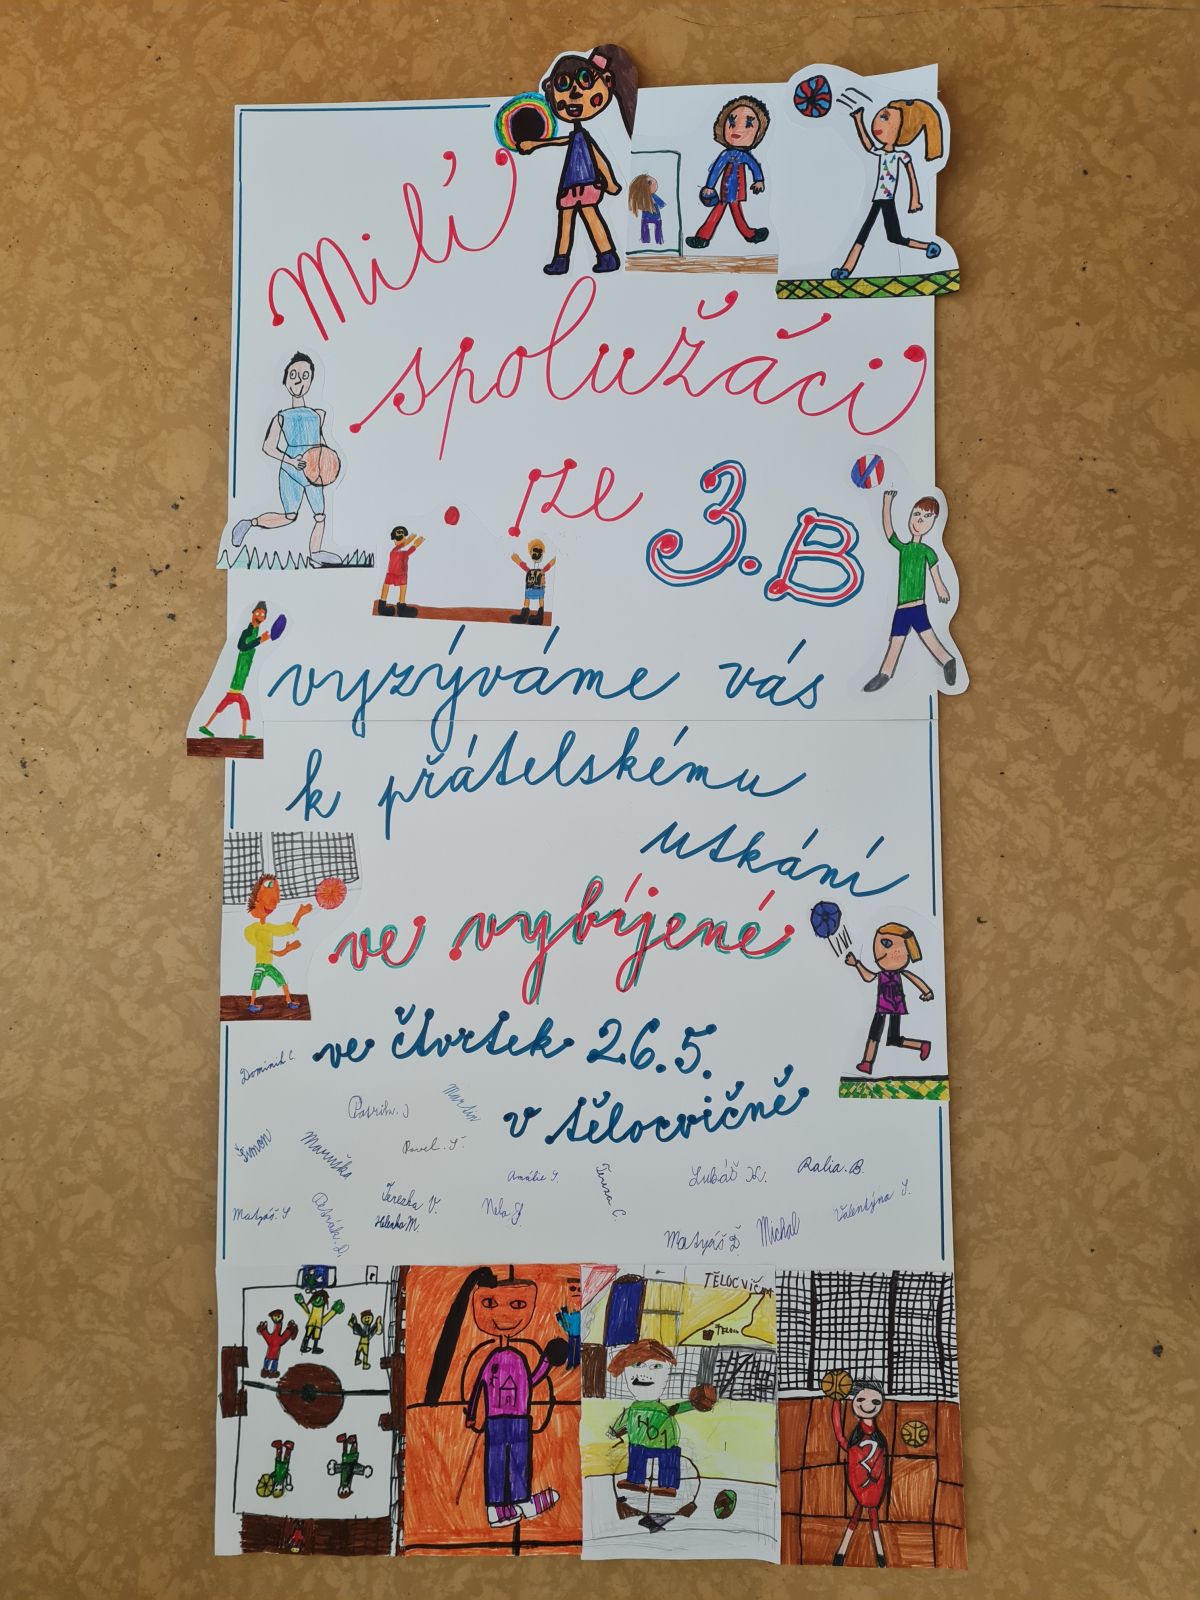 Milí
spolužáci
ze 3.B
vyzýváme vás
k přátelskému
utkání
ve vybíjené
ve čtvrtek 26.5.
v tělocvičně
Dominik C.
Martin
Šimon
Maruška
Pavel. Š.
Amálie Š.
Tereza C.
Lubáš K.
Ralia. B.
Matyáš. S
Terezka V.
Helenka M.
Nela J.
Matyáš D.
Michal
Valentýna S.
TĚLOCVIČN